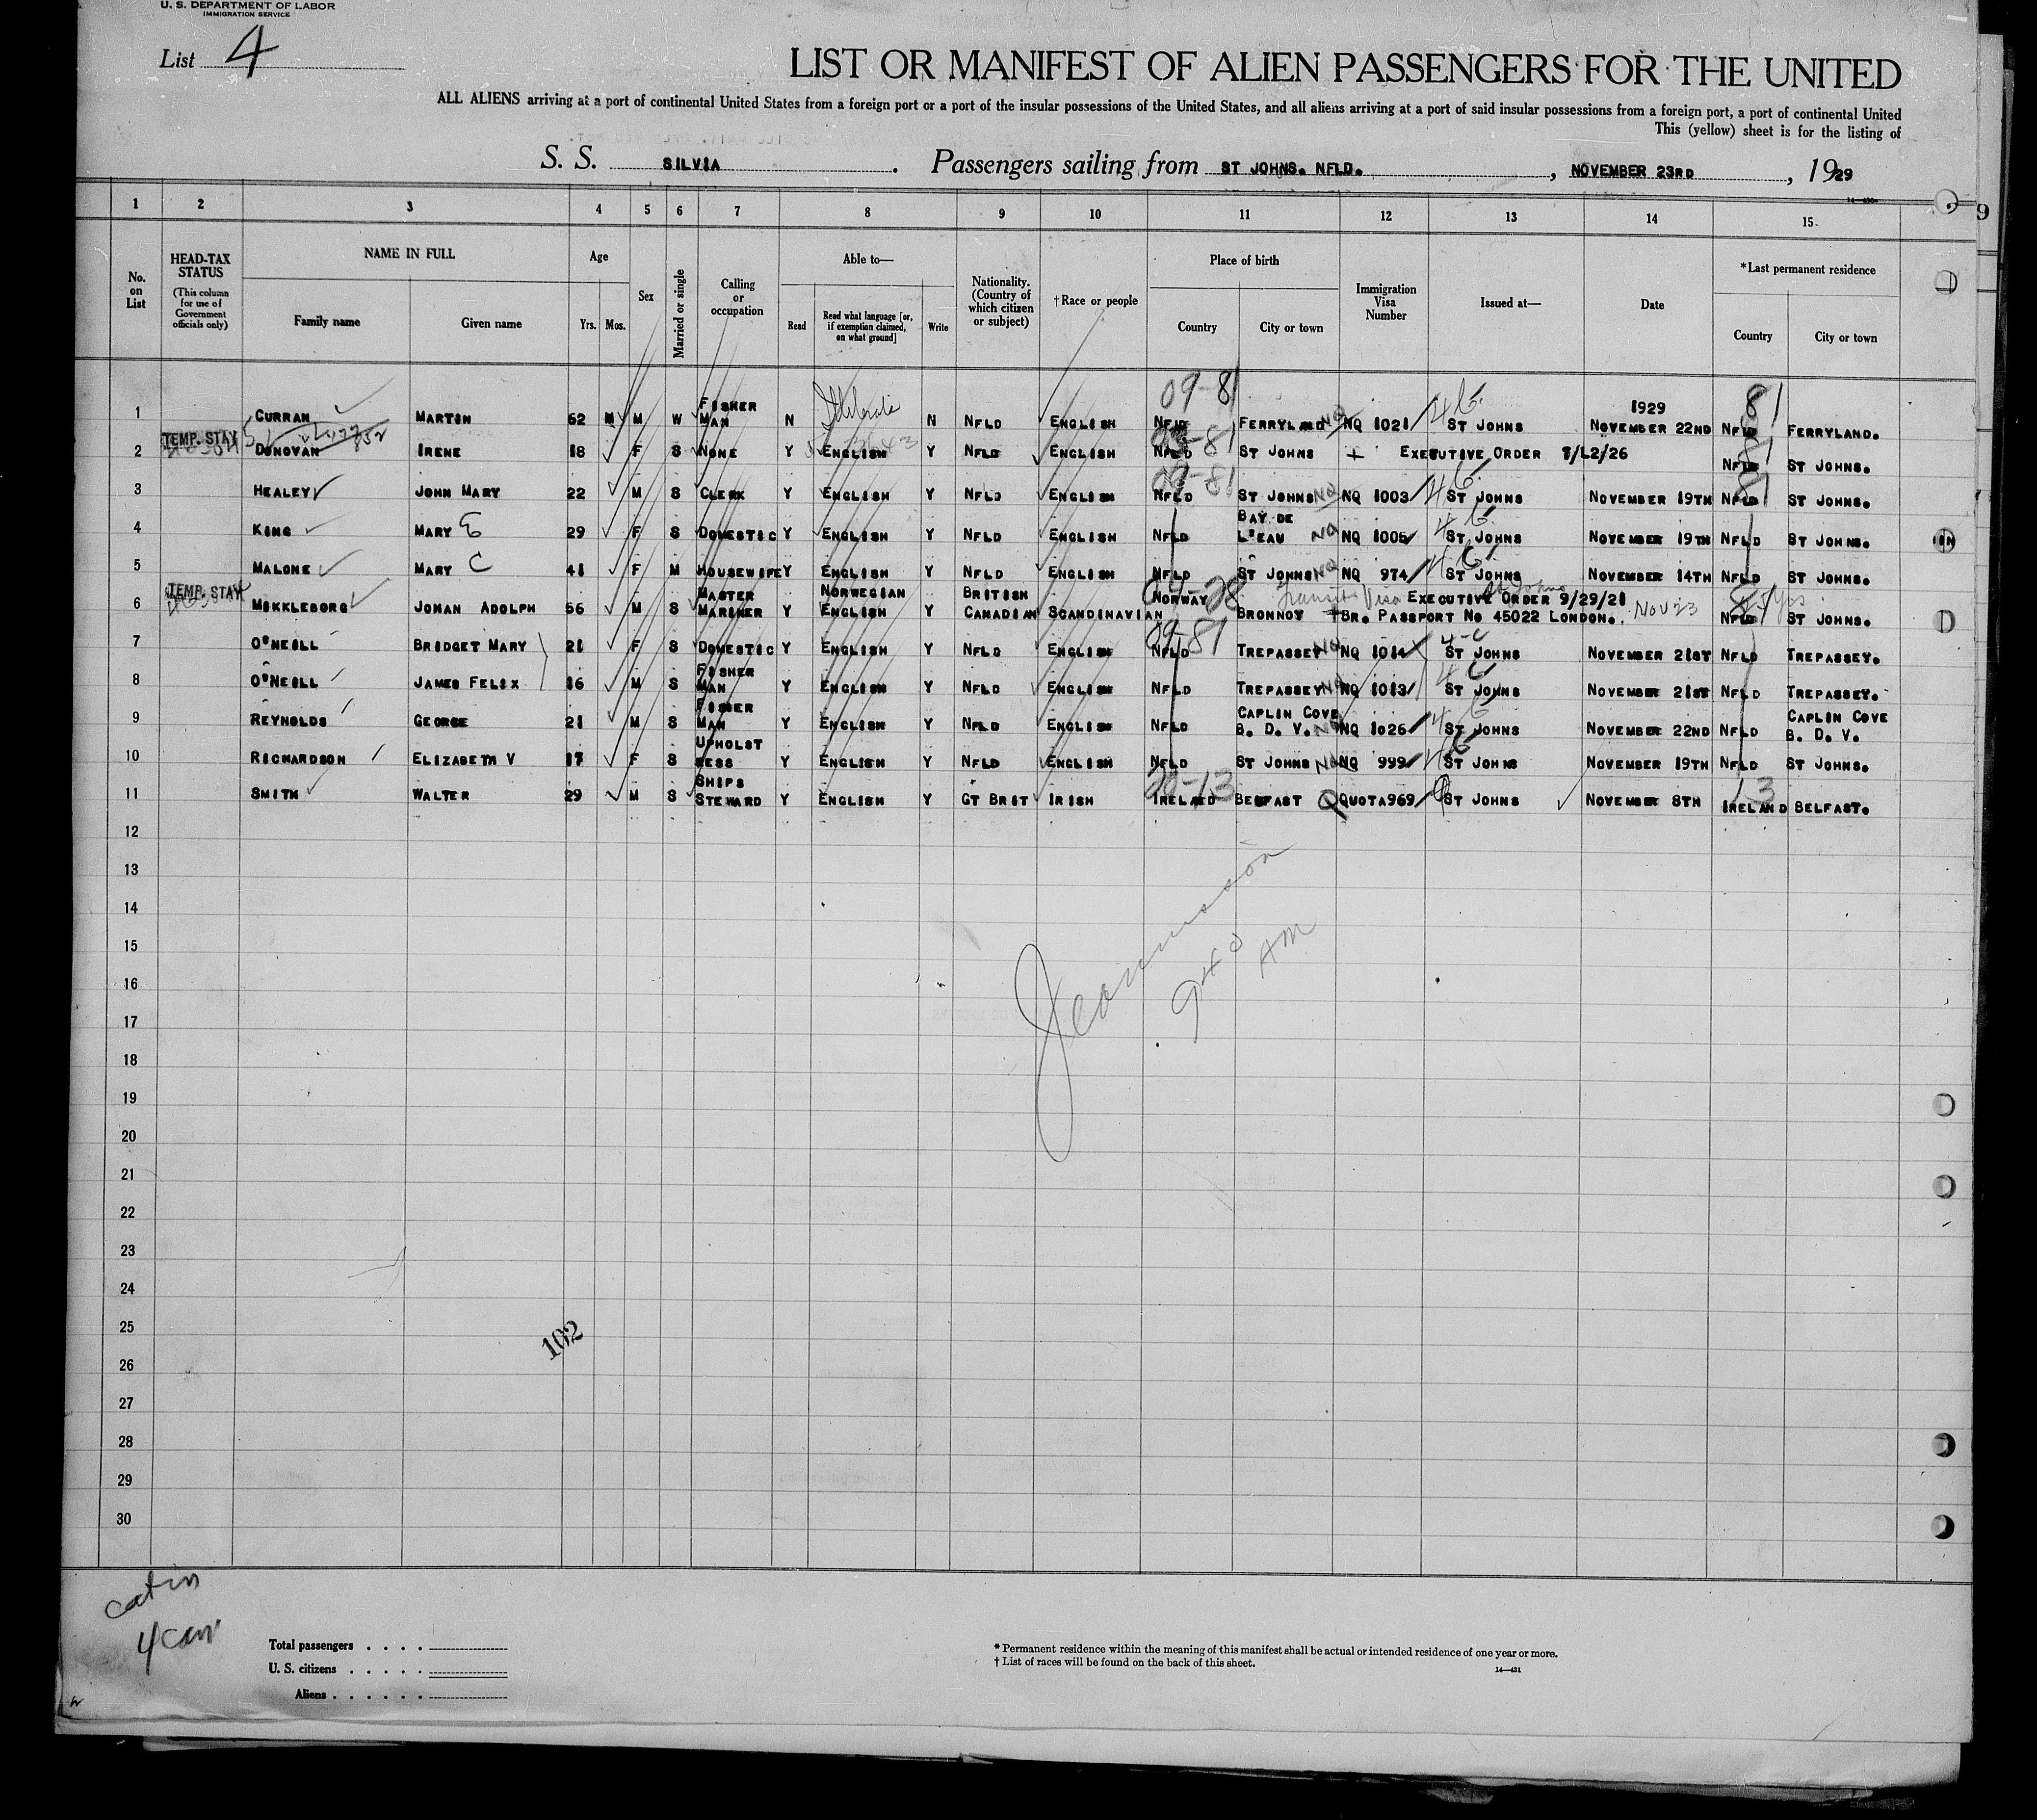 U. S. DEPARTMENT OF LABOR
IMMIGRATION SERVICE
List 4
LIST OR MANIFEST OF ALIEN PASSENGERS FOR THE UNITED
ALL ALIENS arriving at a port of continental United States from a foreign port or a port of the insular possessions of the United States, and all aliens arriving at a port of said insular possessions from a foreign port, a port of continental United
This (yellow) sheet is for the listing of
S. S. SILVIA. Passengers sailing from ST JOHNS. NFLD., NOVEMBER 23RD, 1929
1 2 3 4 5 6 7 8 9 10 11 12 13 14 15
No. on List
HEAD-TAX STATUS (This column for use of Government officials only)
NAME IN FULL Family name Given name
Age Yrs. Mos.
Sex
Married or single
Calling or occupation
Able to— Read Read what language [or, if exemption claimed, on what ground] Write
Nationality. (Country of which citizen or subject)
†Race or people
Place of birth Country City or town
Immigration Visa Number
Issued at—
Date
*Last permanent residence Country City or town
1 CURRAN MARTIN 62 M W FISHER MAN N Illiterate N NFLD ENGLISH 09-81 NFLD FERRYLAND NQ NQ 1021 ST JOHNS 1929 NOVEMBER 22ND 81 NFLD FERRYLAND.
2 TEMP. STAY DONOVAN IRENE 18 F S NONE Y ENGLISH Y NFLD ENGLISH NFLD ST JOHNS + EXECUTIVE ORDER NFLD ST JOHNS.
3 HEALEY JOHN MARY 22 M S CLERK Y ENGLISH Y NFLD ENGLISH NFLD ST JOHNS NQ NQ 1003 ST JOHNS NOVEMBER 19TH NFLD ST JOHNS.
4 KING MARY E 29 F S DOMESTIC Y ENGLISH Y NFLD ENGLISH NFLD BAY DE L'EAU NQ NQ 1005 ST JOHNS NOVEMBER 19TH NFLD ST JOHNS.
5 MALONE MARY C 41 F M HOUSEWIFE Y ENGLISH Y NFLD ENGLISH NFLD ST JOHNS NQ NQ 974 ST JOHNS NOVEMBER 14TH NFLD ST JOHNS.
6 TEMP. STAY MIKKLEBORG JOHAN ADOLPH 56 M S MASTER MARINER Y NORWEGIAN ENGLISH Y BRITISH CANADIAN SCANDINAVIAN NORWAY BRONNOY Transit Visa St Johns EXECUTIVE ORDER 9/29/21 BR. PASSPORT NO 45022 LONDON. Nov 23 NFLD ST JOHNS.
7 O'NEILL BRIDGET MARY 21 F S DOMESTIC Y ENGLISH Y NFLD ENGLISH 09-81 NFLD TREPASSEY NQ NQ 1014 ST JOHNS NOVEMBER 21ST NFLD TREPASSEY.
8 O'NEILL JAMES FELIX 16 M S FISHER MAN Y ENGLISH Y NFLD ENGLISH NFLD TREPASSEY NQ NQ 1013 ST JOHNS NOVEMBER 21ST NFLD TREPASSEY.
9 REYNOLDS GEORGE 21 M S FISHER MAN Y ENGLISH Y NFLD ENGLISH NFLD CAPLIN COVE B. D. V. NQ NQ 1026 ST JOHNS NOVEMBER 22ND NFLD CAPLIN COVE B. D. V.
10 RICHARDSON ELIZABETH V 17 F S UPHOLST RESS Y ENGLISH Y NFLD ENGLISH NFLD ST JOHNS NQ NQ 999 ST JOHNS NOVEMBER 19TH NFLD ST JOHNS.
11 SMITH WALTER 29 M S SHIPS STEWARD Y ENGLISH Y GT BRIT IRISH IRELAND BELFAST Q QUOTA969 ST JOHNS NOVEMBER 8TH 13 IRELAND BELFAST.
12
13
14
15
16
17
18
19
20
21
22
23
24
25
26
27
28
29
30
940 AM
102
4 can
Total passengers . . . .
U. S. citizens . . . . .
Aliens . . . . . .
* Permanent residence within the meaning of this manifest shall be actual or intended residence of one year or more.
† List of races will be found on the back of this sheet.
14—431